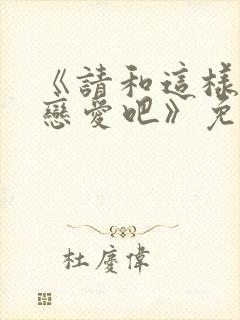 《請和這樣
戀愛吧》免
杜慶偉